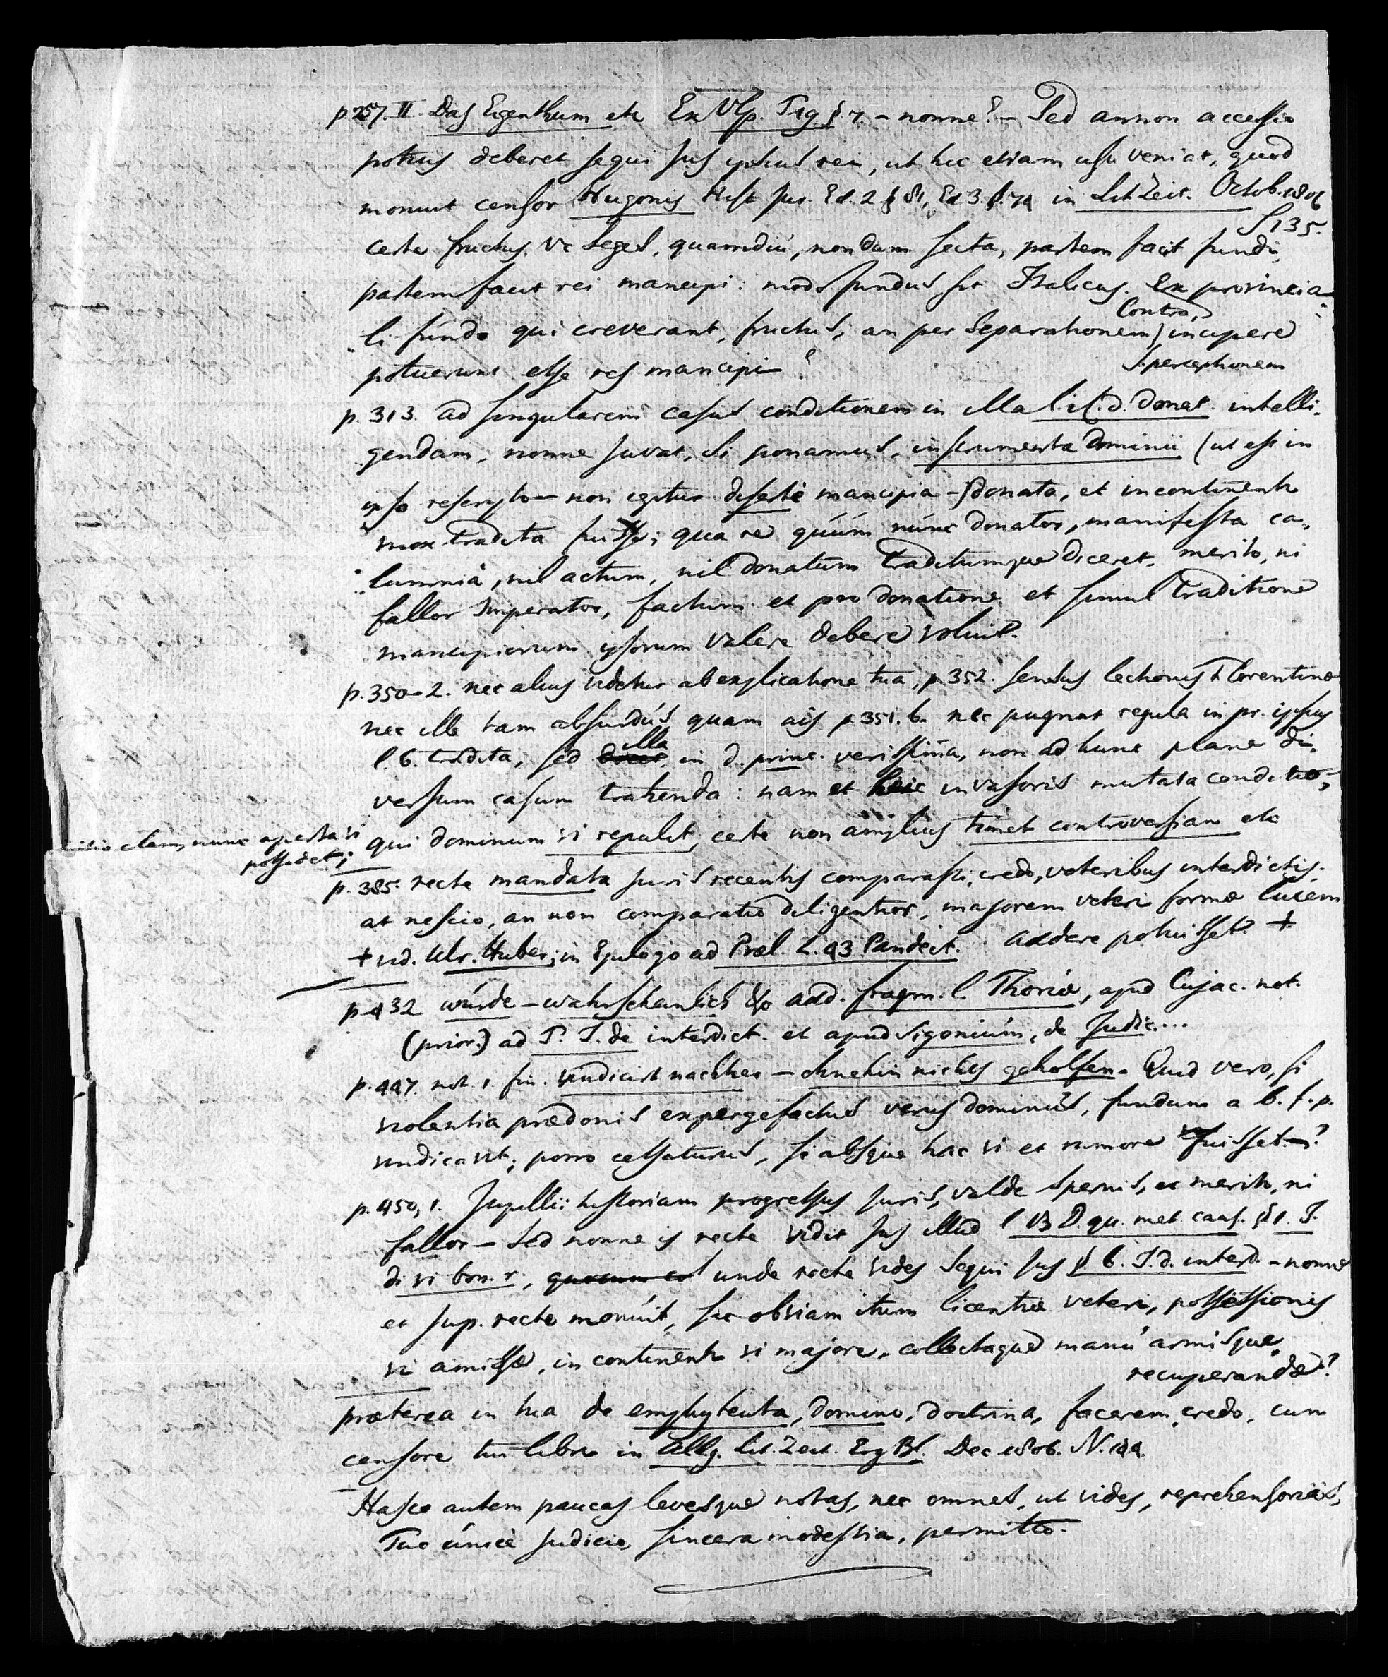 p. 257. II. Das Eigenthum etc Ex Ulp. Frg. § 7. – nonne? – Sed annon accessio
potius deberet sequi jus ipsius rei, ut hic etiam usu veniat, quod
monuit censor Hugonis Hist. jur. Ed. 2 § 81, Ed 3 § 74 in Lit. Zeit. Octob. 1806
S 135.
certe fructus. Vc Seges, quamdiu, nondum secta, partem facit fundi,
partem facit rei mancipi: modo fundus sit Italicus. Ex provincia-
li fundo qui creverant, fructus, an per separationem, incipere
Contra,
s. perceptionem
potuerunt esse res mancipi?
p. 313. ad singularem casus conditionem in illa l. 1 C. d. donat. intelli-
gendam, nonne juvat, si ponamus, instrumenta dominii (ut est in
ipso rescripto – non igitur diserte mancipia –) donata, et incontinenti
mox tradita fuisse; qua re quum nunc donator, manifesta ca-
lumnia, nil actum, nil donatum traditumque diceret, merito, ni
fallor Imperator, factum et pro donatione et simul traditione
mancipiorum ipsorum valere debere voluit.
p. 350–2. nec alius videtur ab explicatione tua, p 352. sensus lectionis Florentinae
nec ille tam absurdus quam ais p 351. b. nec pugnat regula in pr. ipsius
l. 6. tradita, sed illa in d. princ. verissima, non ad hunc plane di-
versum casum trahenda: nam et heic invasoris mutata conditio,
qui dominum vi repulit, certe non amplius timet controversiam etc
clam, nunc aperta vi
possidet;
p. 385. recte mandata juris recentis comparasti, credo, veteribus interdictis.
at nescio, an non comparatio diligentior, majorem veteri formae lucem
addere potuisset +
+ vid. Ulr. Huber, in Epilogo ad Prael. L. 43 Pandect.
p 432 würde – wahrscheinlich etc add. fragm. l. Thoriae, apud Cujac. not.
(prior.) ad T. I. de interdict. et apud Sigonium, de Judic....
p. 447. not. 1 fin. vindicirt nachher – ohnehin nichts geholfen. Quid vero, si
violentia praedonis expergefactus verus dominus, fundum a b. f. p.
vindicavit; porro cessaturus, si absque hac vi et rumore fuisset –?
p. 450, 1. Jupillii historiam progressus juris, valde spernis, et merito, ni
fallor – Sed nonne is recte vidit jus illud l 13 D. qu. met. caus. § 1. I.
d. vi bon. r., unde recte vides sequi jus § 6. I. d. interd. – nonne
et Jup. recte monuit, sic obviam itum licentiae veteri, possessionis
vi amissae, incontinenti vi majore, collectaque manu armisque,
recuperandae?
praeterea in tua de emphyteuta, domino, doctrina, facerem, credo, cum
censore tui libri in Allg. Lit. Zeit. Erg Bl. Dec. 1806. N. 144
Hasce autem paucas levesque notas, nec omnes, ut vides, reprehensorias,
Tuo unice judicio, sincera modestia, permitto.